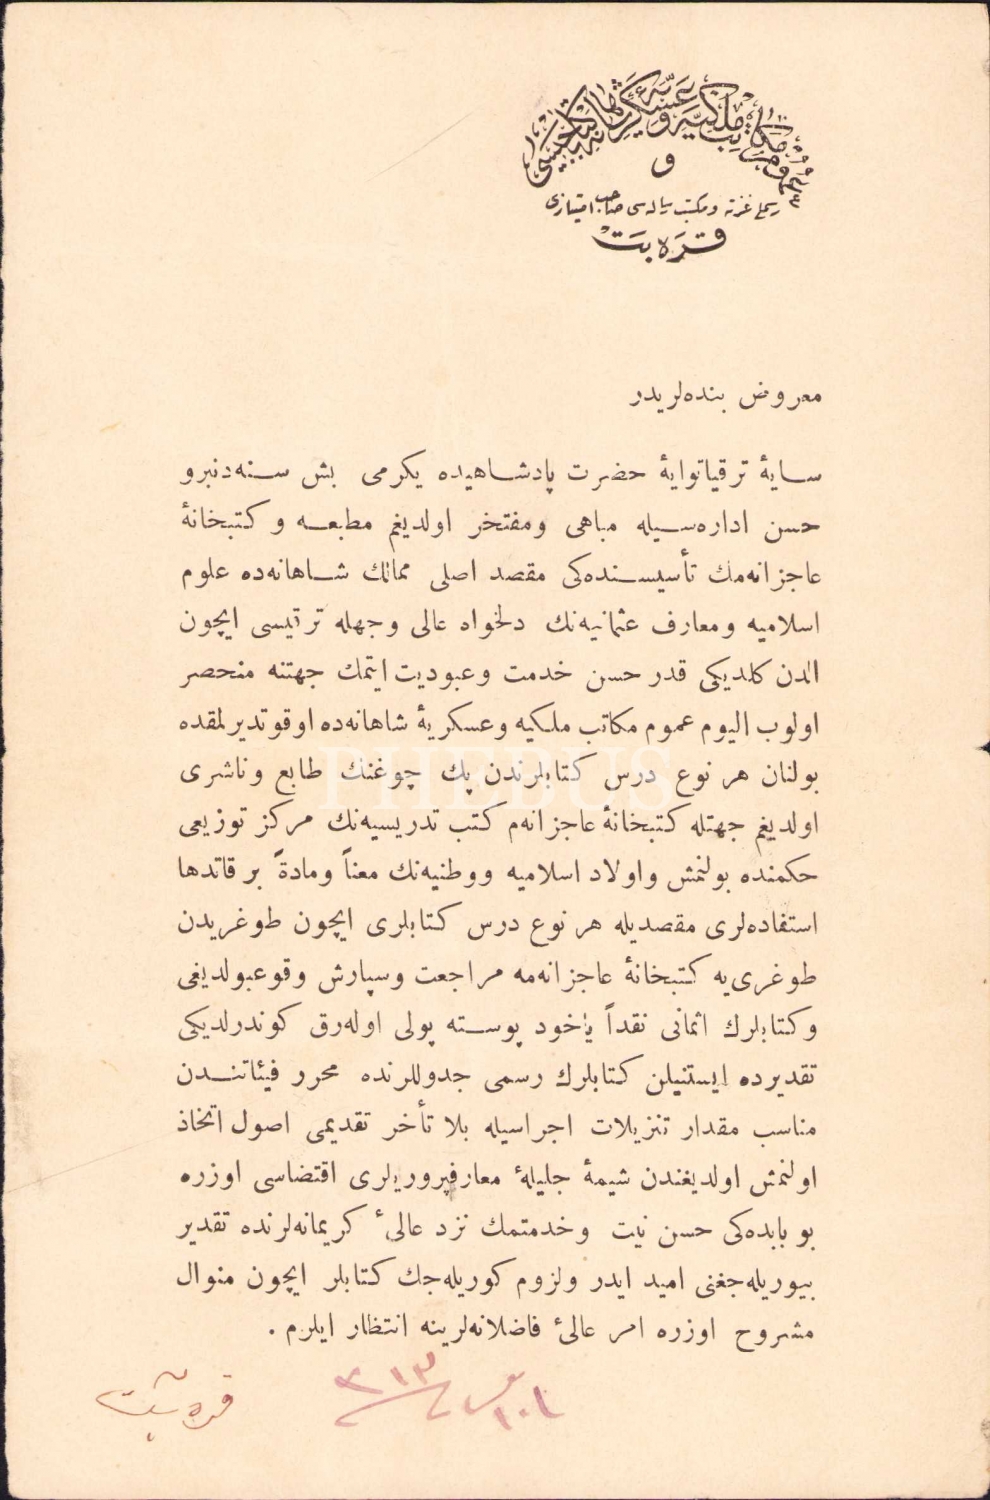 عموم مكاتب ملكيه و عسكريه شاهانه كتابجيسى
و
رسملى غزته و مكتب رساله سى صاحب امتيازى
قره بت
معروض بنده‌لريدر
سايهٔ ترقياتوايهٔ حضرت پادشاهيده يكرمى بش سنه‌دنبرو
حسن اداره‌سيله مباهى ومفتخر اولديغم مطبعه و كتبخانهٔ
عاجزانه‌مك تأسيسنده‌كى مقصد اصلى ممالك شاهانه‌ده علوم
اسلاميه ومعارف عثمانيه‌نك دلخواه عالى وجهله ترقيسى ايچون
الدن كلديكى قدر حسن خدمت وعبوديت ايتمك جهتنه منحصر
اولوب اليوم عموم مكاتب ملكيه وعسكريهٔ شاهانه‌ده اوقوتديرلمقده
بولنان هر نوع درس كتابلرندن پك چوغنك طابع وناشرى
اولديغم جهتله كتبخانهٔ عاجزانه‌م كتب تدريسيه‌نك مركز توزيعى
حكمنده بولنمش واولاد اسلاميه ووطنيه‌نك معناً ومادةً بر قاتدها
استفاده‌لرى مقصديله هر نوع درس كتابلرى ايچون طوغريدن
طوغرى‌يه كتبخانهٔ عاجزانه‌مه مراجعت وسپارش وقوعبولديغى
وكتابلرك اثمانى نقداً ياخود پوسته پولى اوله‌رق كوندرلديكى
تقديرده ايستنيلن كتابلرك رسمى جدوللرنده محرر فيئاتندن
مناسب مقدار تنزيلات اجراسيله بلا تأخر تقديمى اصول اتخاذ
اولنمش اولديغندن شيمهٔ جليلهٔ معارفپروريلرى اقتضاسى اوزره
بو بابده‌كى حسن نيت وخدمتمك نزد عالىٔ كريمانه‌لرنده تقدير
بيوريله‌جغنى اميد ايدر ولزوم كوريله‌جك كتابلر ايچون منوال
مشروح اوزره امر عالىٔ فاضلانه‌لرينه انتظار ايلرم .
قره بت
PHEBUS